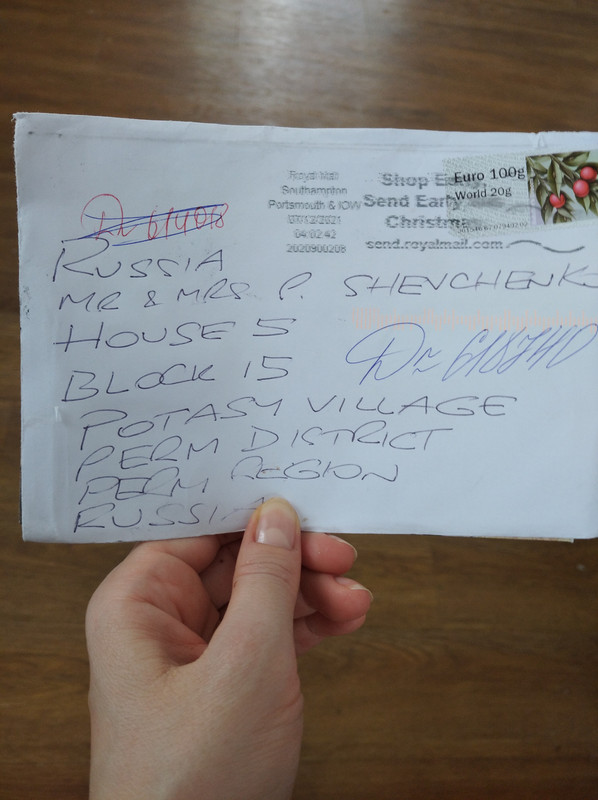 Royal Mail
Southampton
Portsmouth & IOW
07/12/2021
04:02:42
2020900208
Shop Early
Send Early
Christma
send.royalmail.com
Euro 100g
World 20g
RUSSIA
MR & MRS P. SHEVCHENK
HOUSE 5
BLOCK 15
POTASY VILLAGE
PERM DISTRICT
PERM REGION
RUSSIA